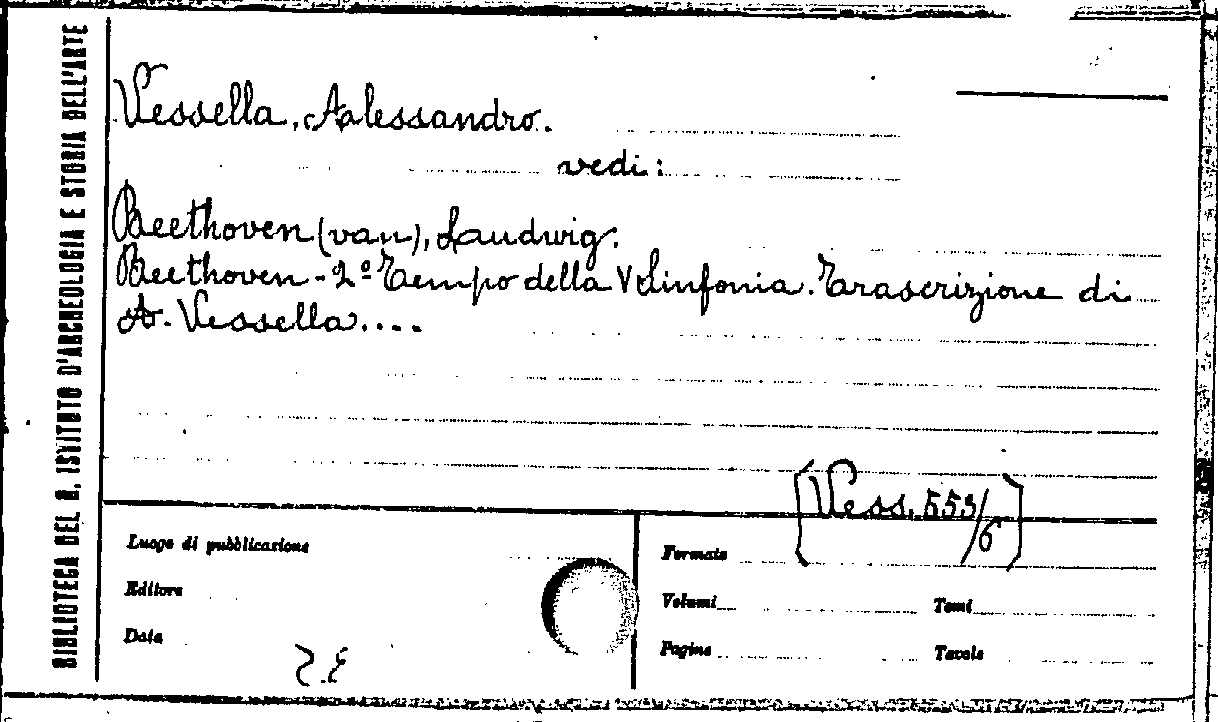 BIBLIOTECA DEL R. ISTITUTO D'ARCHEOLOGIA E STORIA DELL'ARTE
Vessella, Alessandro.
vedi:
Beethoven (van), Laudwig.
Beethoven - 2º Tempo della V Sinfonia. Trascrizione di
A. Vessella....
[Vess. 553/6]
Luogo di pubblicazione
Editore
Data
Formato
Volumi Tomi
Pagine Tavole